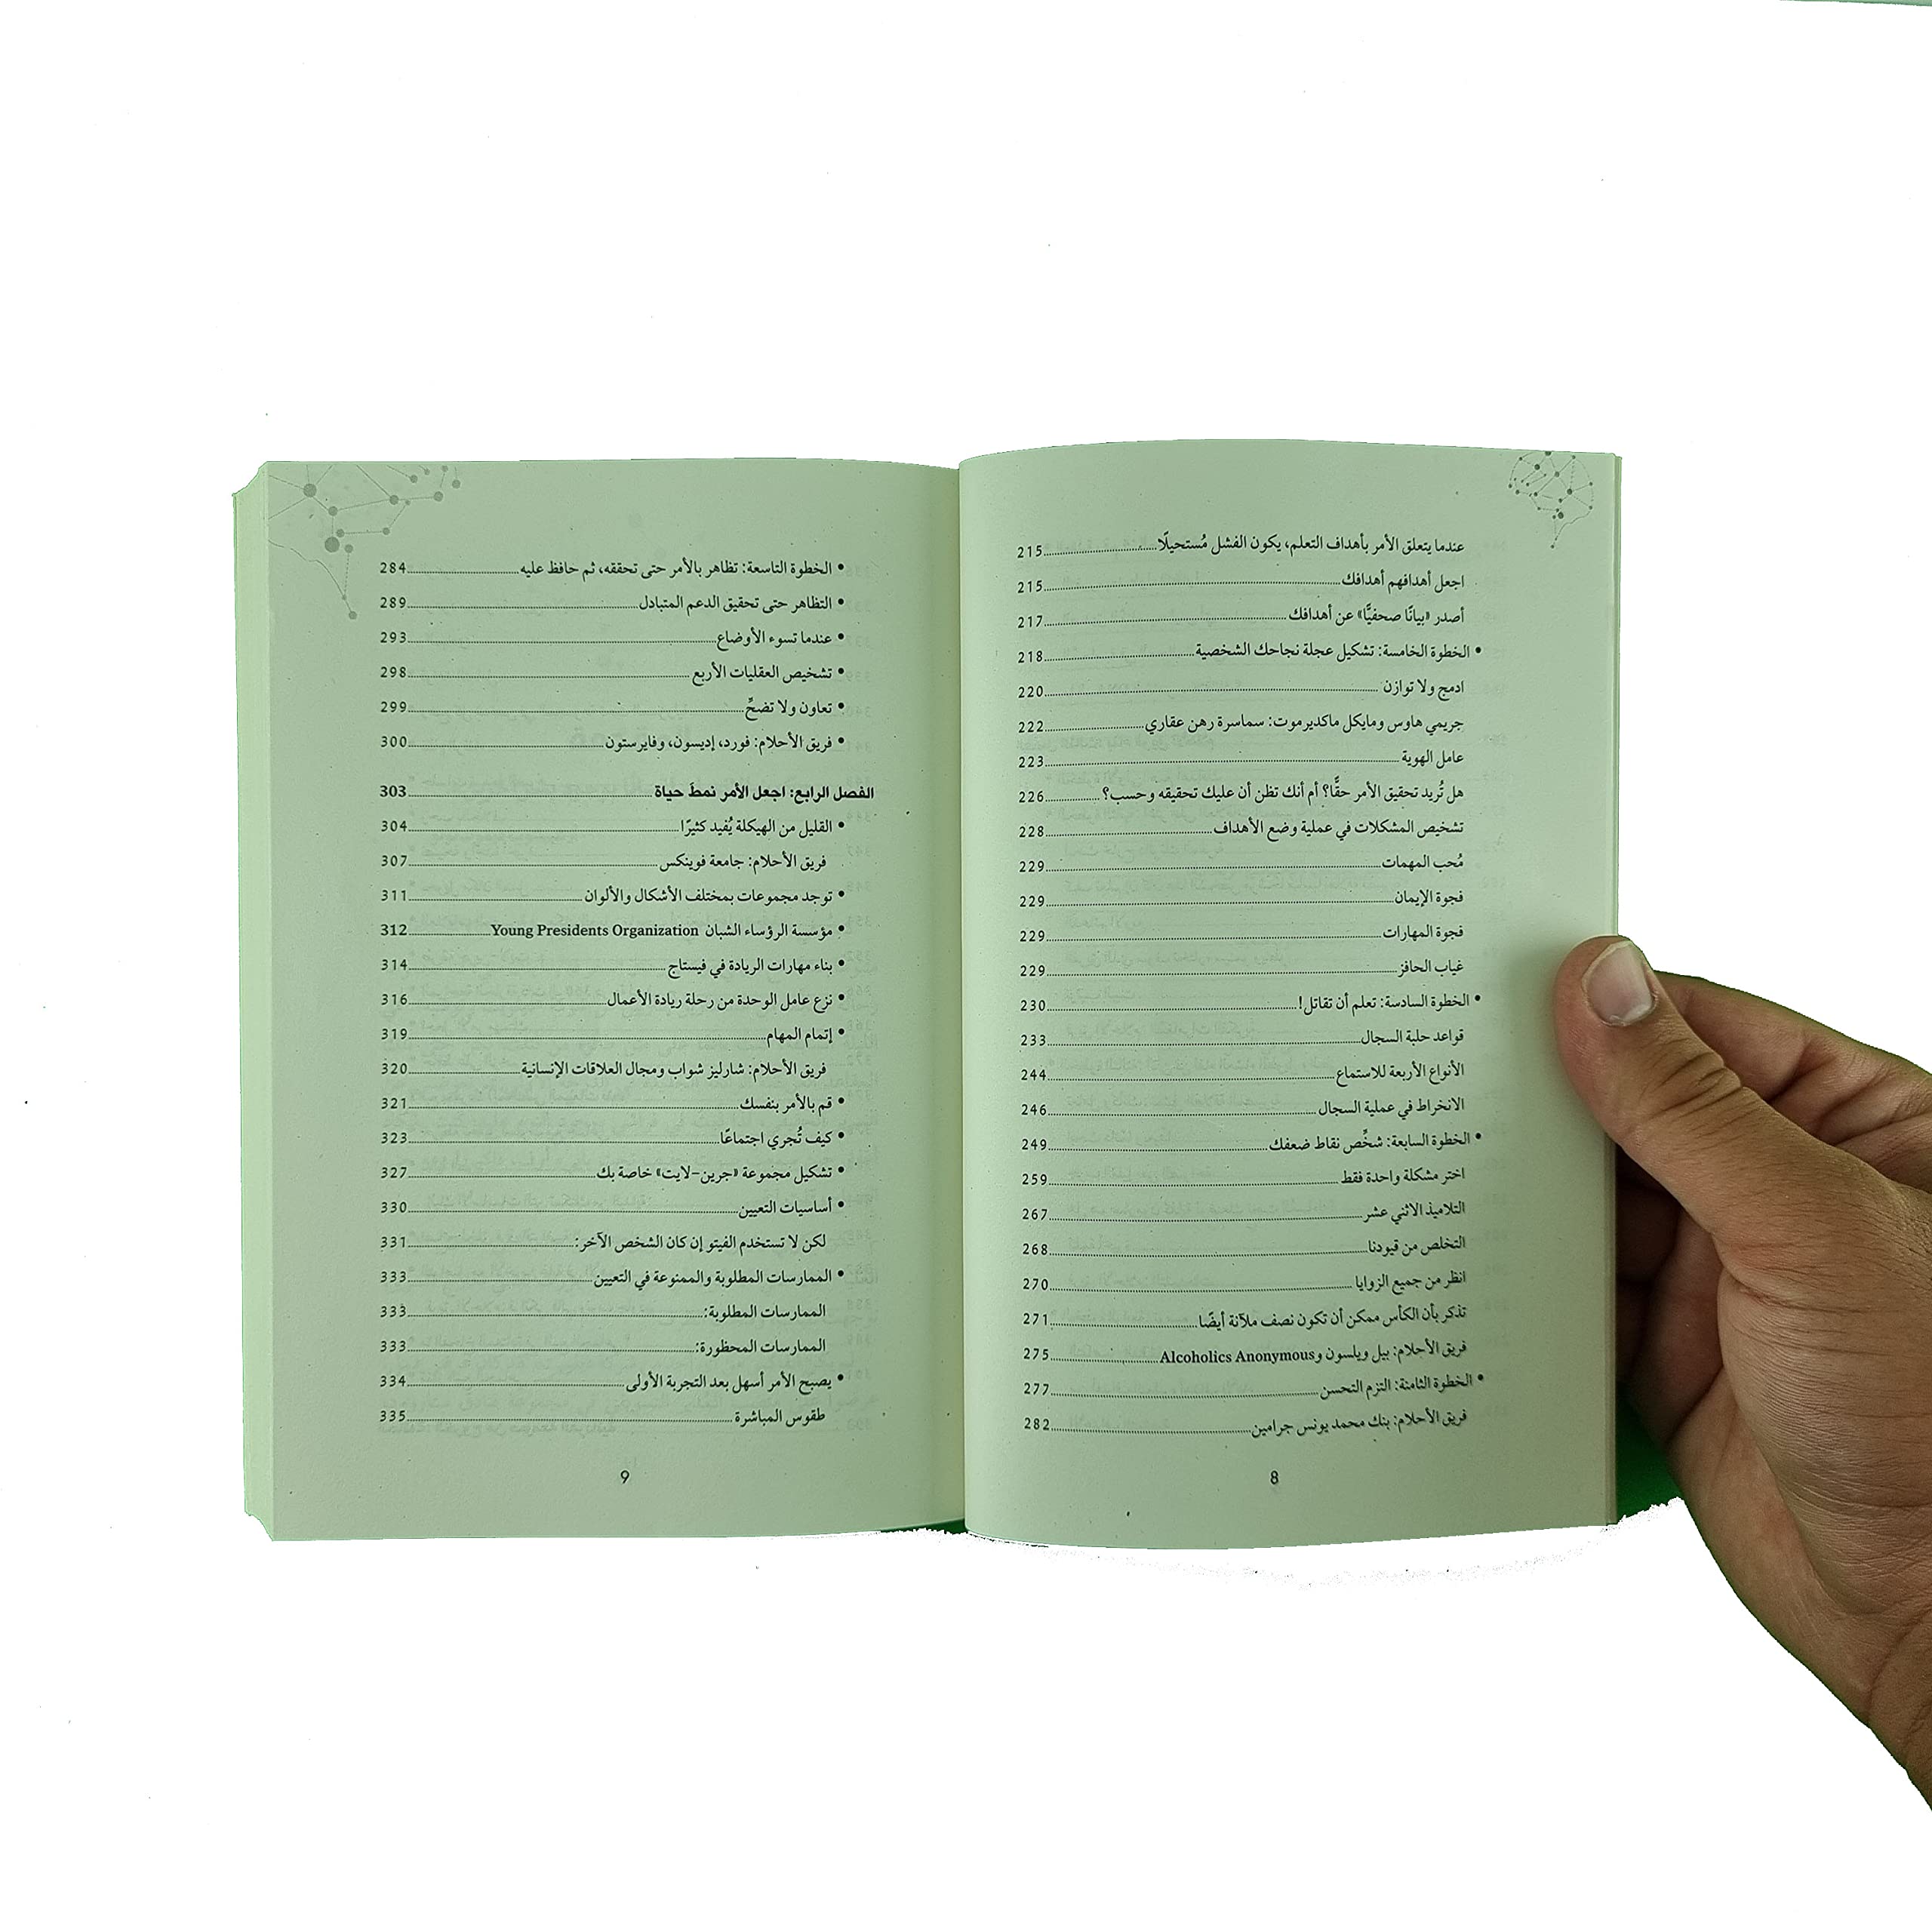 عندما يتعلق الأمر بأهداف التعلم، يكون الفشل مُستحيلًا 215
اجعل أهدافهم أهدافك 215
أصدر «بيانًا صحفيًّا» عن أهدافك 217
• الخطوة الخامسة: تشكيل عجلة نجاحك الشخصية 218
ادمج ولا توازن 220
جريمي هاوس ومايكل ماكديرموت: سماسرة رهن عقاري 222
عامل الهوية 223
هل تُريد تحقيق الأمر حقًّا؟ أم أنك تظن أن عليك تحقيقه وحسب؟ 226
تشخيص المشكلات في عملية وضع الأهداف 228
مُحب المهمات 229
فجوة الإيمان 229
فجوة المهارات 229
غياب الحافز 229
• الخطوة السادسة: تعلم أن تقاتل! 230
قواعد حلبة السجال 233
الأنواع الأربعة للاستماع 244
الانخراط في عملية السجال 246
• الخطوة السابعة: شخِّص نقاط ضعفك 249
اختر مشكلة واحدة فقط 259
التلاميذ الاثني عشر 267
التخلص من قيودنا 268
انظر من جميع الزوايا 270
تذكر بأن الكأس ممكن أن تكون نصف ملآنة أيضًا 271
فريق الأحلام: بيل ويلسون وAlcoholics Anonymous 275
• الخطوة الثامنة: التزم التحسن 277
فريق الأحلام: بنك محمد يونس جرامين 282
8
• الخطوة التاسعة: تظاهر بالأمر حتى تحققه، ثم حافظ عليه 284
• التظاهر حتى تحقيق الدعم المتبادل 289
• عندما تسوء الأوضاع 293
• تشخيص العقليات الأربع 298
• تعاون ولا تضحِّ 299
• فريق الأحلام: فورد، إديسون، وفايرستون 300
الفصل الرابع: اجعل الأمر نمطَ حياة 303
• القليل من الهيكلة يُفيد كثيرًا 304
فريق الأحلام: جامعة فوينكس 307
• توجد مجموعات بمختلف الأشكال والألوان 311
• مؤسسة الرؤساء الشبان Young Presidents Organization 312
• بناء مهارات الريادة في فيستاج 314
• نزع عامل الوحدة من رحلة ريادة الأعمال 316
• إتمام المهام 319
فريق الأحلام: شارليز شواب ومجال العلاقات الإنسانية 320
• قم بالأمر بنفسك 321
• كيف تُجري اجتماعًا 323
• تشكيل مجموعة «جرين-لايت» خاصة بك 327
• أساسيات التعيين 330
لكن لا تستخدم الفيتو إن كان الشخص الآخر: 331
• الممارسات المطلوبة والممنوعة في التعيين 333
الممارسات المطلوبة: 333
الممارسات المحظورة: 333
• يصبح الأمر أسهل بعد التجربة الأولى 334
طقوس المباشرة 335
9